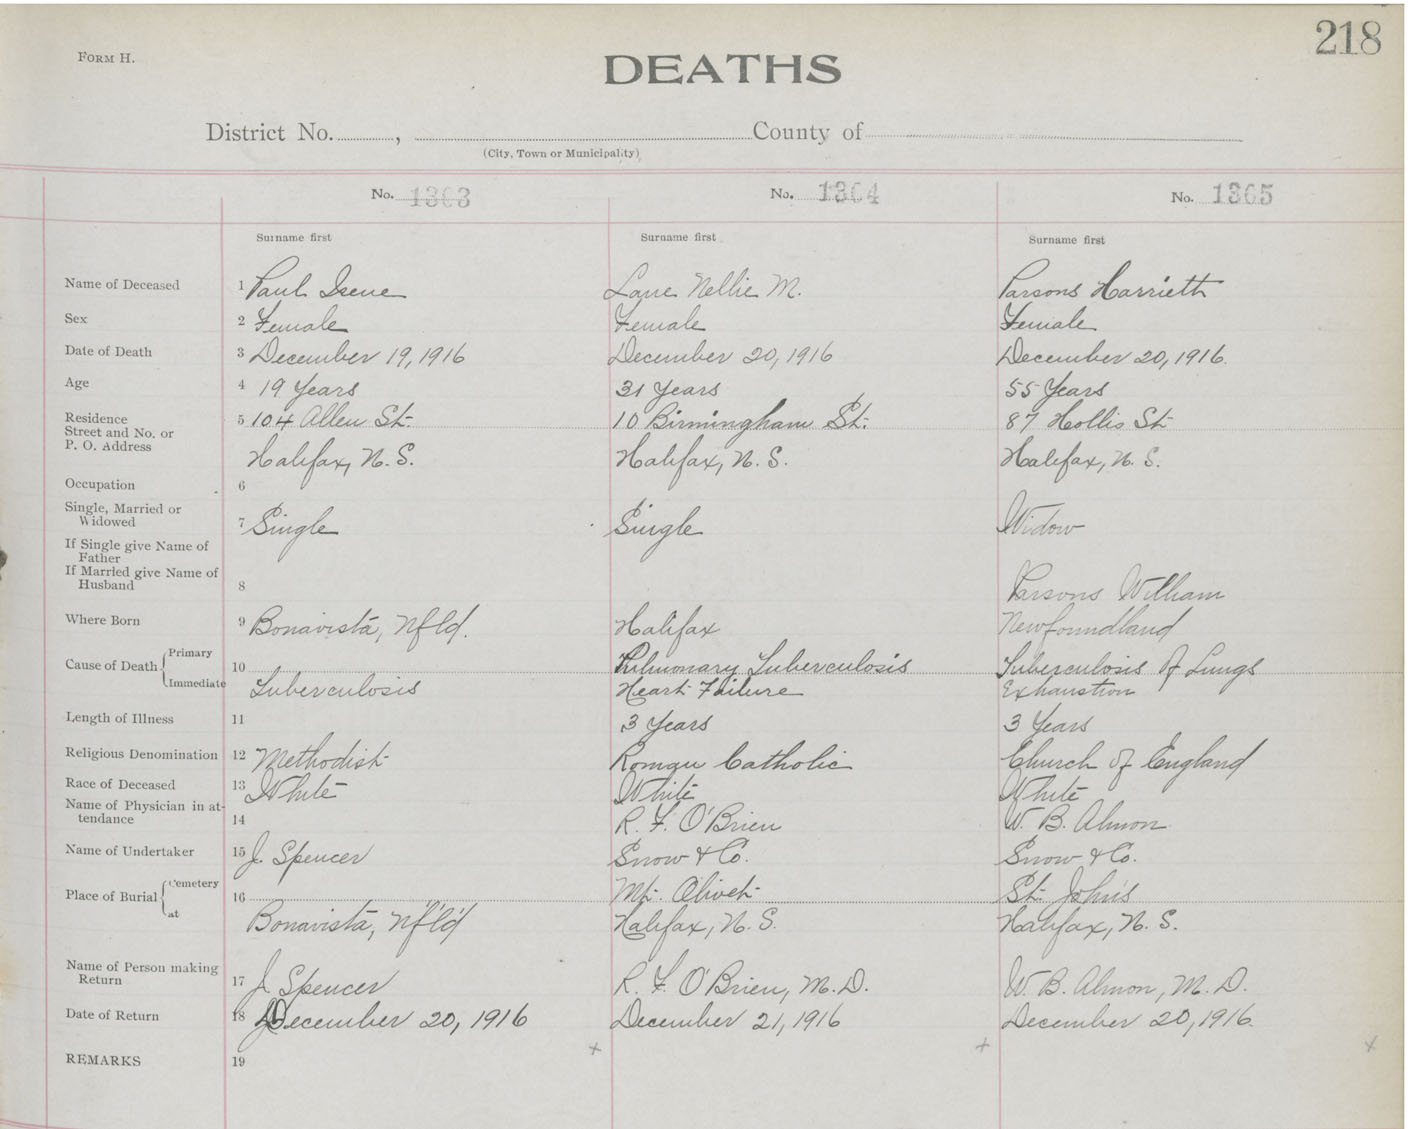 218
FORM H.
DEATHS
District No. , County of
(City, Town or Municipality)
No. 1303 No. 1304 No. 1305
Surname first Surname first Surname first
Name of Deceased 1 Paul Irene Lane Nellie M. Parsons Harrieth
Sex 2 Female Female Female
Date of Death 3 December 19, 1916 December 20, 1916 December 20, 1916.
Age 4 19 Years 31 Years 55 Years
Residence
Street and No. or 5 104 Allen St. 10 Birmingham St. 87 Hollis St
P. O. Address
Halifax, N. S. Halifax, N. S. Halifax, N. S.
Occupation 6
Single, Married or
Widowed 7 Single Single Widow
If Single give Name of
Father
If Married give Name of
Husband 8 Parsons William
Where Born 9 Bonavista, Nfld. Halifax Newfoundland
Cause of Death Primary 10 Pulmonary Tuberculosis Tuberculosis of Lungs
Immediate Tuberculosis Heart Failure Exhaustion
Length of Illness 11 3 Years 3 Years
Religious Denomination 12 Methodist Roman Catholic Church of England
Race of Deceased 13 White White White
Name of Physician in at-
tendance 14 R. F. O'Brien W. B. Almon
Name of Undertaker 15 J. Spencer Snow & Co. Snow & Co.
Place of Burial Cemetery 16 Mt. Olivet St. John's
at Bonavista, Nf'l'd Halifax, N. S. Halifax, N. S.
Name of Person making
Return 17 J. Spencer R. F. O'Brien, M. D. W. B. Almon, M. D.
Date of Return 18 December 20, 1916 December 21, 1916 December 20, 1916.
REMARKS 19 + + x